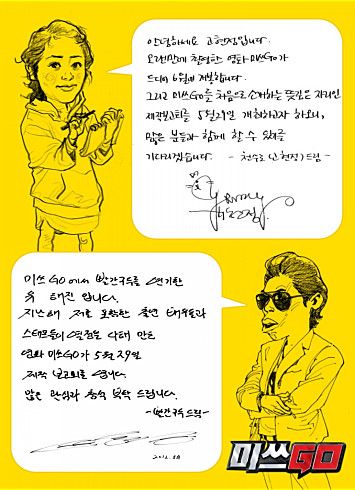 안녕하세요 고현정입니다.
오랜만에 촬영한 영화 미쓰GO가
드디어 6월에 개봉합니다.
그리고 미쓰GO를 처음으로 소개하는 뜻깊은 자리인
제작보고회를 5월29일 개최하고자 하오니,
많은 분들과 함께 할 수 있기를
기다리겠습니다. - 천수로(고현정)드림 -
고현정
미쓰 GO에서 빨간구두를 연기한
유 해진 입니다.
지난해 저를 포함한 출연 배우들과
스태프들이 열정을 다해 만든
영화 미쓰GO가 5월 29일
제작 보고회를 엽니다.
많은 관심과 참석 부탁 드립니다.
-빨간구두 드림-
2012.
미쓰GO